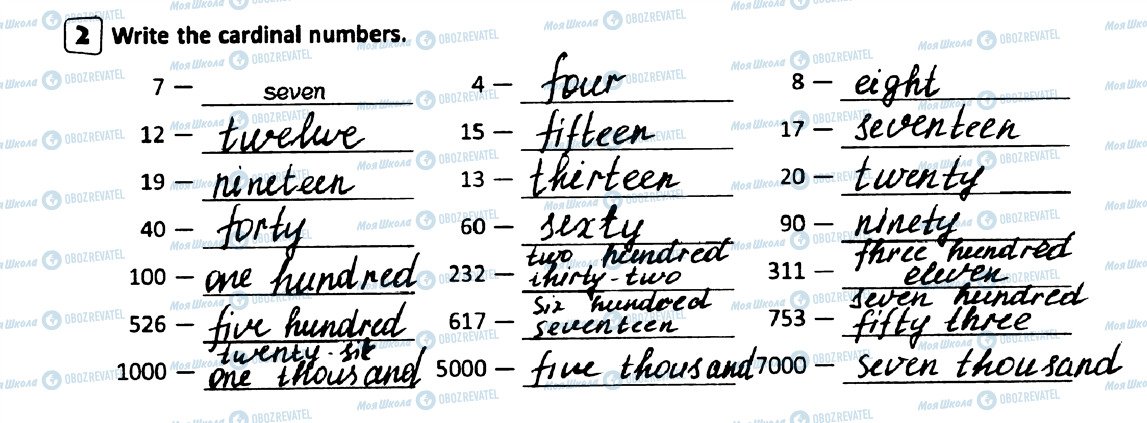 2 Write the cardinal numbers.
7 — seven 4 — four 8 — eight
12 — twelwe 15 — fifteen 17 — seventeen
19 — nineteen 13 — thirteen 20 — twenty
40 — forty 60 — sexty 90 — ninety
100 — one hundred 232 — two hundred thirty-two 311 — three hundred eleven
526 — five hundred twenty-six 617 — six hundred seventeen 753 — seven hundred fifty three
1000 — one thousand 5000 — five thousand 7000 — seven thousand
Моя Школа OBOZREVATEL